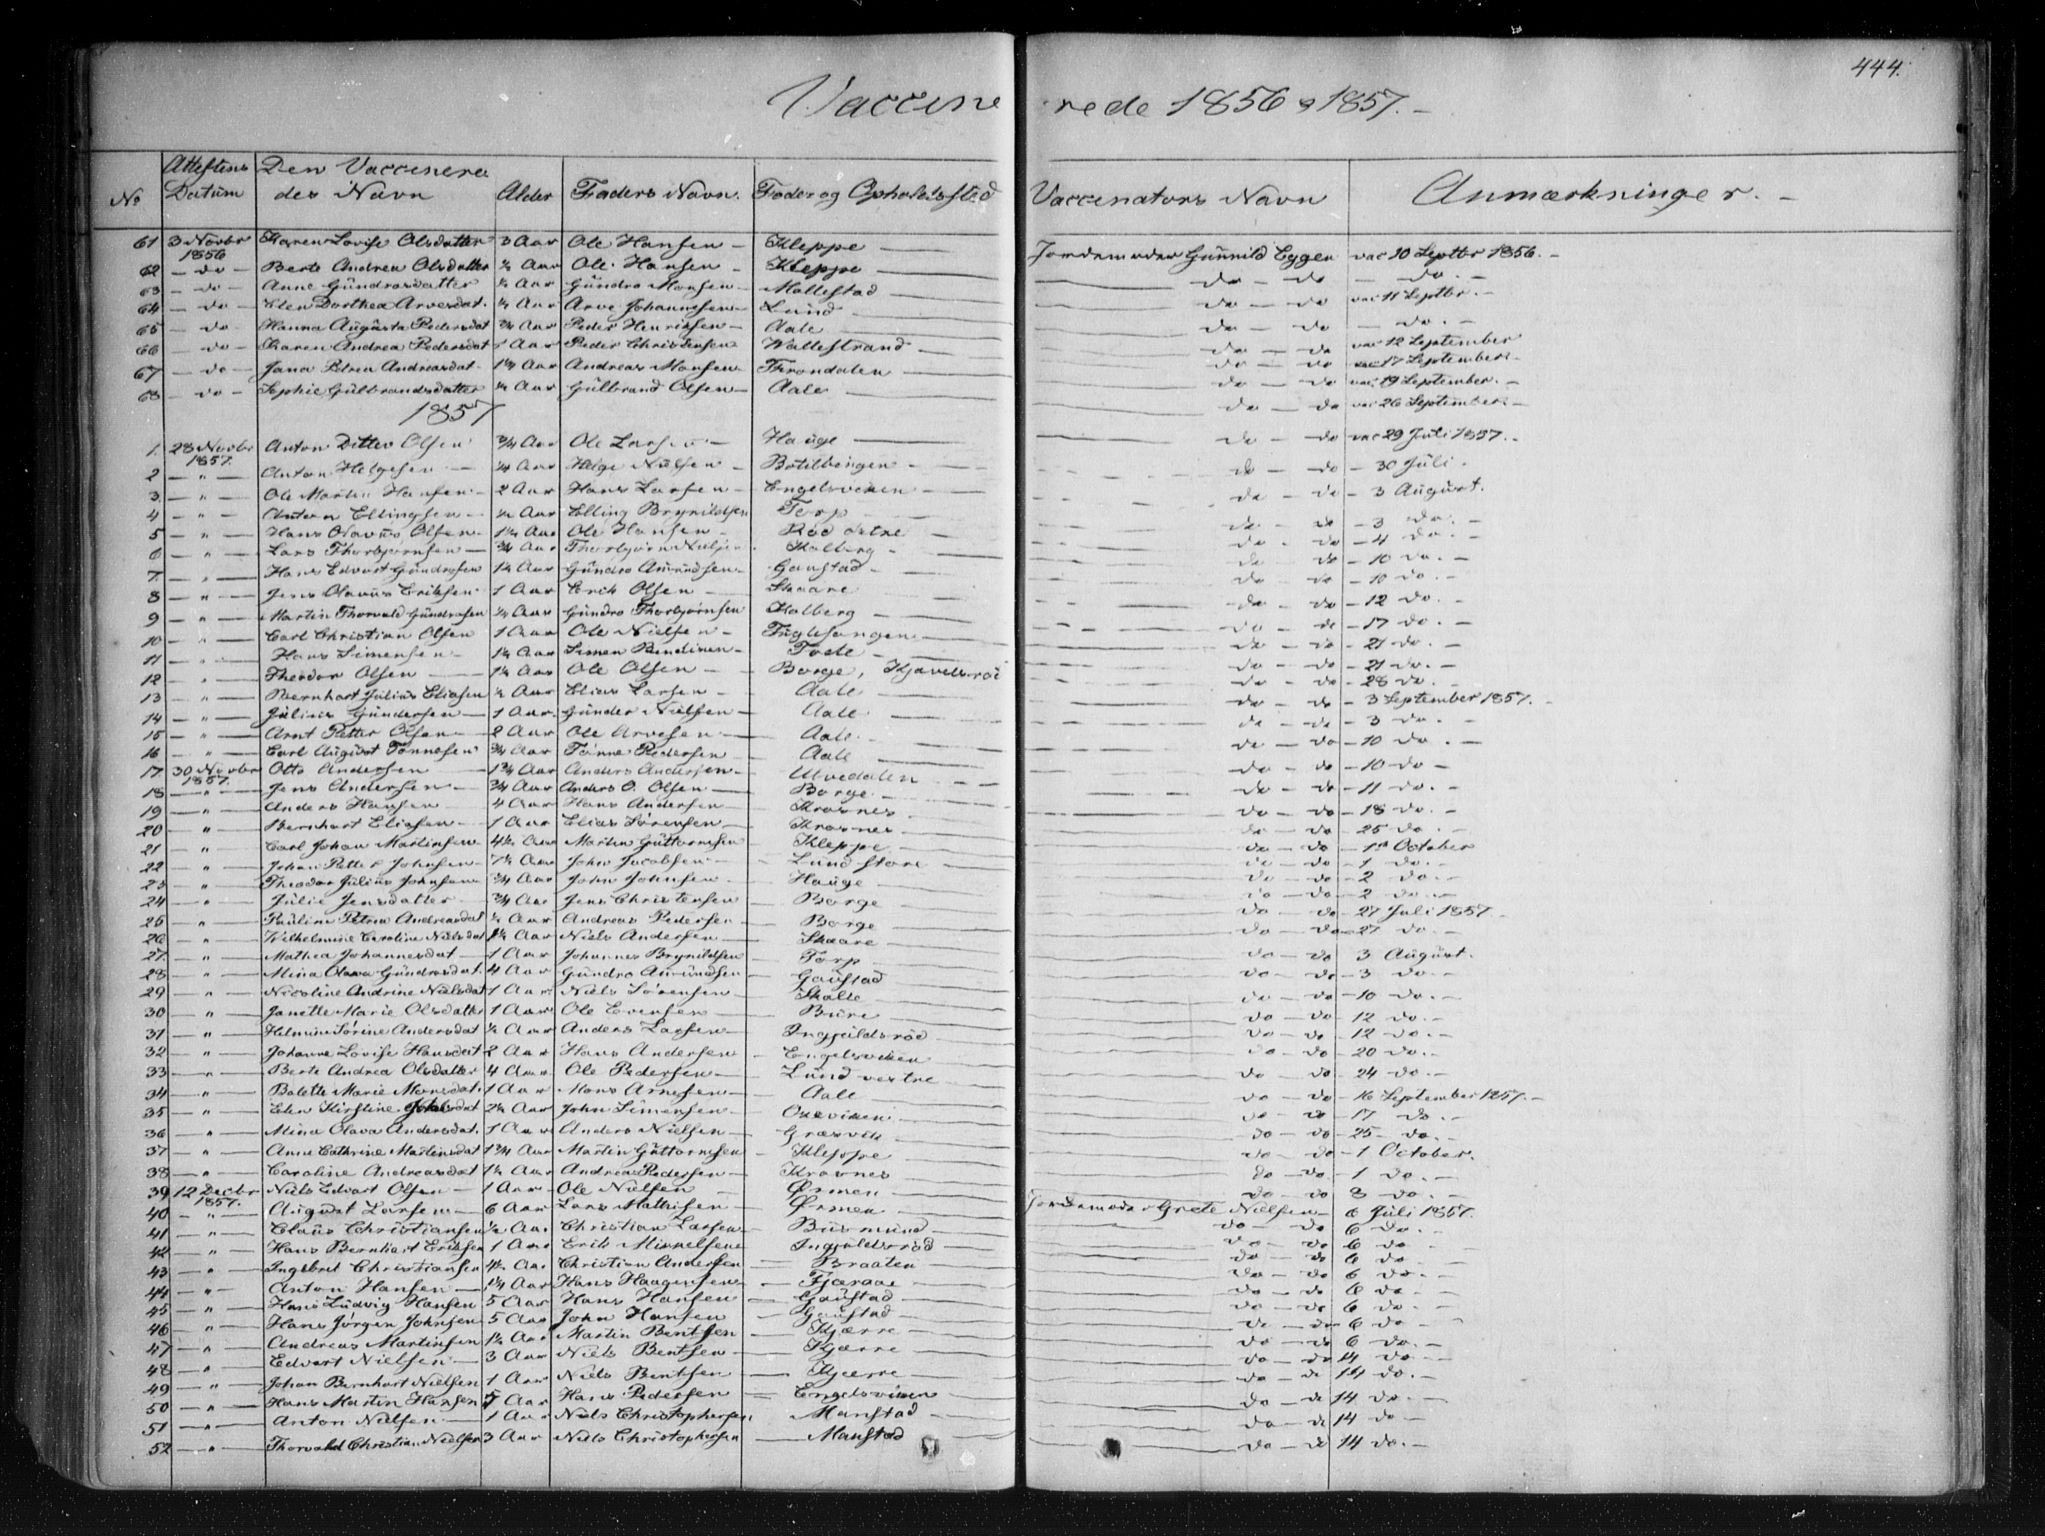 444.
Vaccenerede 1856 o 1857. –
No Attestens Datum Den Vaccenere des Navn Alder Faders Navn. Føde og Opholdssted Vaccenators Navn Anmærkninger. –
61 3 Novbr 1856 Karen Lovise Olsdatter 3 Aar Ole Hansen – Kleppe Jordemoder Gunnild Eggen vac 10 Septbr 1856. –
62 – do – Berte Andrea Olsdatter ½ Aar Ole Hansen – Kleppe do – do – do. –
63 – do – Anne Gündrosdatter ½ Aar Gündro Monsen – Mallestad do – do vac 11 Septbr. –
64 – do – Elen Dorthea Arvesdat. ½ Aar Arve Johannesen – Lund do – do – do. –
65 – do Hanna Augusta Pedersdat ¾ Aar Peder Henriksen – Aale do – do vac 12 September
66 – do – Karen Andrea Pedersdat Aar Peder Christensen Wallestrand do – do vac 17 September. –
67 – do – Jana Petrea Andreasdat. 1½ Aar Andreas Monsen – Trondalen do – do vac 19 September. –
68 – do – Sophie Gülbrandsdatter ½ Aar Gülbrand Olsen – Aale do – do vac 26 September. –
1857
1. 28 Novbr 1857. Anton Ditlev Olsen ¾ Aar Ole Larsen – Hauge do – do vac 29 Juli 1857. –
2 – " – Anton Helgesen – ¼ Aar Helge Nielsen – Botilbongen – do – do – 30 Juli.
3 – " – Ole Martin Hansen – 2 Aar Hans Larsen – Engelsviken – do – do – 3 August.
4 – " – Anton Ellingsen – ½ Aar Elling Brynildsen Torp do – do – 3 do. –
5 – " – Hans Olavus Olsen 1½ Aar Ole Hansen – Rød østre do – do – 4 do. –
6 – " – Lars Thorbjørnsen – ¾ Aar Thorbjørn Kalberg – do – do – 10 do. –
7 – " – Hans Edvart Gündrosen 1½ Aar Gündro Amundsen – Gaustad – do – do – 10 do. –
8 – " – Jens Olavus Eriksen 1 Aar Erik Olsen – Skaare do – do – 12 do. –
9 – " – Martin Thorvald Gündrosen ½ Aar Gündro Thorbjørnsen Kalberg – do – do – 17 do. –
10 – " – Carl Christian Olsen 1 Aar Ole Nielsen – Fuglesangen – do – do – 21 do. –
11 – " – Hans Simensen – 1½ Aar Simen Tofte – do – do – 21 do. –
12 – " – Theodor Olsen – 1½ Aar Ole Olsen – Borge, do – do – 28 do. –
13 – " – Bernhart Julius Eliasen ½ Aar Elias Larsen – Aale do – do – 3 September 1857. –
14 – " – Julius Gündersen – 1 Aar. Günder Nielsen – Aale do – do – 3 do. –
15 – " – Arnt Petter Olsen – 2 Aar Ole Arvesen – Aale. do – do – 10 do. –
16 – " – Carl August Tønnesen ¾ Aar Tønnes Pedersen Aale do – do – 10 do –
17 30 Novbr 1857. Otto Andersen – 1¾ Aar Anders Andersen – Utvedalen do – do – 11 do. –
18 – " – Jens Andersen – ¾ Aar Anders O. Olsen – Borge do – do – 18 do. –
19 – " – Anders Hansen 4 Aar Hans Andersen – Kraanes do – do – 25 do. –
20 " Bernhart Eliasen – 1 Aar Elias Sørensen – Kraanes do – do – 1ste October
21 " Carl Johan Martinsen 4½ Aar Martin Güttormsen Kleppe do – do – 1 do. –
22 " Johan Petter Johnsen – 7½ Aar John Jacobsen – Lund store do – do – 2 do. –
23 – " – Theodor Julius Johnsen ¾ Aar John Johnsen – Hauge do – do – 2 do. –
24 " Julie Jensdatter ¾ Aar Jens Christensen – Borge do – do – 27 Juli 1857. –
25 " Pauline Petrea Andreasdat ½ Aar Andreas Pedersen – Borge do – do – 27 do. –
26 – " – Wilhelmine Caroline Nielsdat 1½ Aar Niels Andersen – Skaare do – do 3 August.
27. – " – Mathea Johannesdat – 1 Aar Johannes Brynildsen Torp do – do – 3 do. –
28 – " – Mina Olava Gündrosdat. 4 Aar Gündro Amundsen Gaustad do – do – 10 do. –
29 – " – Nicoline Andrine Nielsdat 1 Aar Niels Sørensen – Skalle do – do – 12 do. –
30 – " – Janette Marie Olsdatter 1 Aar Ole Evensen – Büre do – do – 12 do. –
31 – " – Helmine Sørine Andersdat ½ Aar Anders Larsen – Ingjuldsrød do – do – 20 do. –
32 – " – Johanne Lovise Hansdat 2 Aar Hans Andersen – Engelsviken do – do – 24 do. –
33 – " – Berte Andrea Olsdatter 4 Aar Ole Pedersen – Lund vestre do – do – 16 September 1857. –
34 – " – Bolette Marie Monsdat. 1 Aar Mons Arnesen – Aale do – do – 17 do. –
35 – " – Elen Kirstine Johnsdat 2½ Aar John Simensen – Oxeviken do – do – 25 do. –
36 – " – Mina Olava Andersdat. 1 Aar Anders Nielsen – Græsvik do – do – 1 October.
37 – " – Anne Cathrine Martinsdat 1¾ Aar Martin Güttormsen Kleppe do – do – 1 do. –
38 – " – Caroline Andreasdat 1½ Aar Andreas Pedersen – Kraanes do – do 8 do. –
39 12 Decbr 1857. Niels Edvart Olsen – 1 Aar – Ole Nielsen Ørmen Jordemoder Grete Nielsen – 6 Juli 1857.
40 – " – August Larsen – 6 Aar Lars Mathisen – Ørmen do – do 6 do. –
41 – " – Claus Christiansen ½ Aar Christian Larsen – do – do 6 do –
42 – " – Hans Bernhart Eriksen 1 Aar Erik Mikkelsen Ingjuldsrød do – do 6 do –
43 – " – Ingebret Christiansen 4½ Aar Christian Andersen Braaten do – do 6 do. –
44 – " – Anton Hansen – 1¼ Aar Hans Haagensen – Fjæraae do – do 6 do –
45 – " – Hans Ludvig Hansen 5 Aar Hans Hansen – Gaustad do – do 6 do. –
46 – " – Hans Jørgen Johnsen 5 Aar John Hansen Gaustad do – do – 6 do –
47 – " – Andreas Martinsen 1½ Aar Martin Bentsen – Kjærre do – do 6 do. –
48 – " – Edvart Nielsen – 3 Aar Niels Bentsen – Kjærre do – do 14 do. –
49 – " – Johan Bernhart Nielsen 1 Aar Niels Bentsen – Kjærre do – do 14 do. –
50 – " – Hans Martin Hansen 5 Aar Hans Pedersen – Engelsviken do – do 14 do. –
51 – " – Anton Nielsen – 1 Aar Niels Christophersen Manstad – do – do 14 do –
52 – " – Thorvald Christian Nielsen 3 Aar Niels Christophersen – Manstad do – do 14 do. –